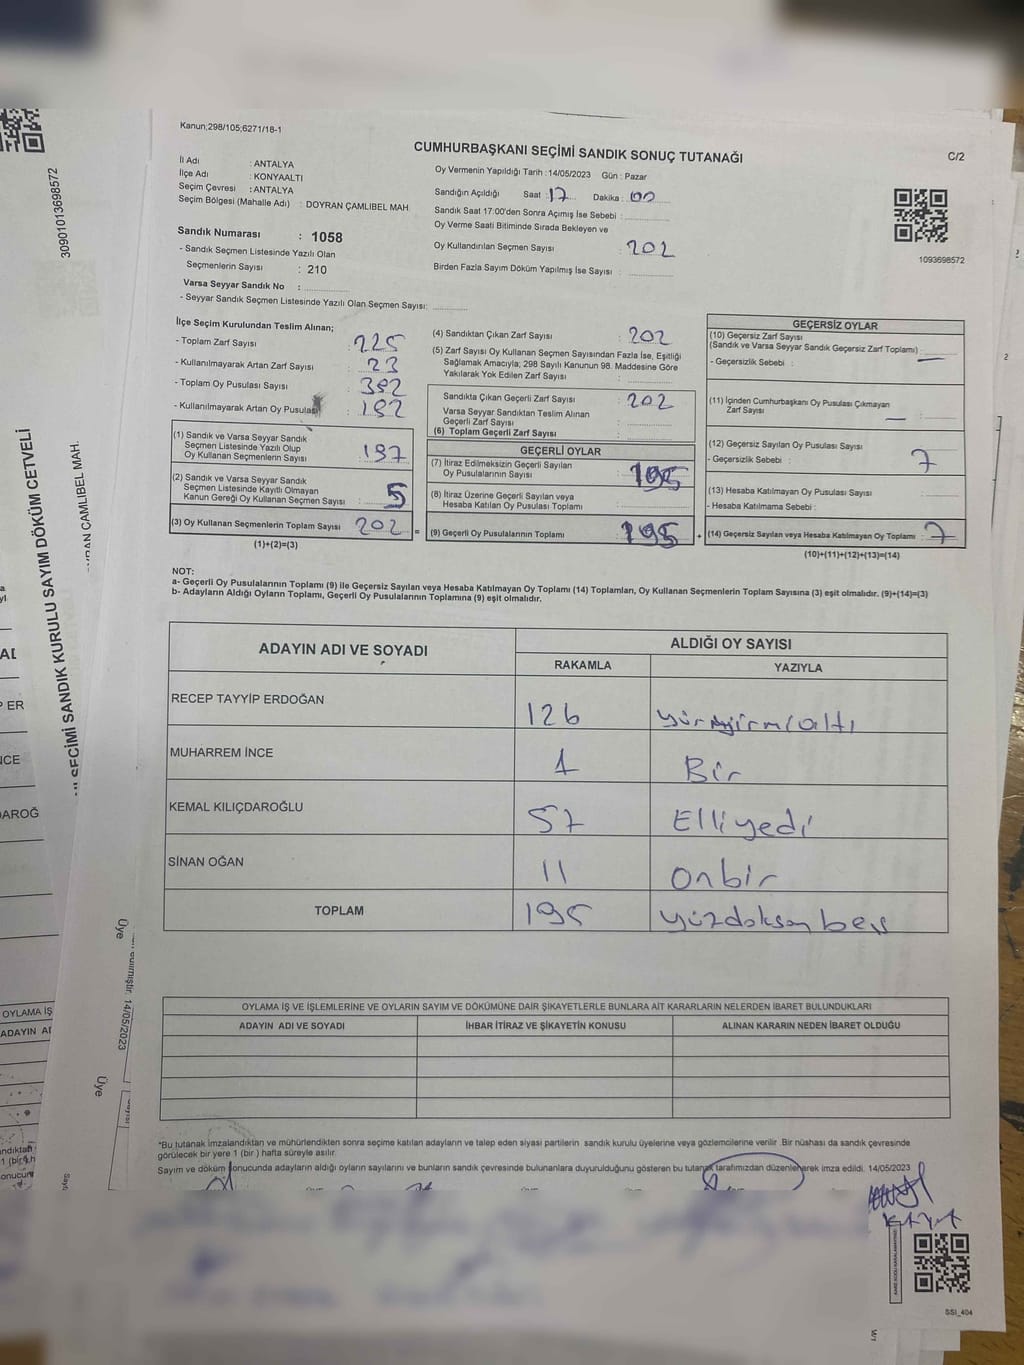 Kanun;298/105;6271/18-1
CUMHURBAŞKANI SEÇİMİ SANDIK SONUÇ TUTANAĞI
C/2
İl Adı : ANTALYA
İlçe Adı : KONYAALTI
Seçim Çevresi : ANTALYA
Seçim Bölgesi (Mahalle Adı) : DOYRAN ÇAMLIBEL MAH.
Sandık Numarası : 1058
- Sandık Seçmen Listesinde Yazılı Olan
Seçmenlerin Sayısı : 210
Varsa Seyyar Sandık No :
- Seyyar Sandık Seçmen Listesinde Yazılı Olan Seçmen Sayısı:
Oy Vermenin Yapıldığı Tarih :14/05/2023 Gün : Pazar
Sandığın Açıldığı Saat : 17 Dakika : 00
Sandık Saat 17:00'den Sonra Açımış İse Sebebi :
Oy Verme Saati Bitiminde Sırada Bekleyen ve
Oy Kullandırılan Seçmen Sayısı : 202
Birden Fazla Sayım Döküm Yapılmış İse Sayısı :
1093698572
İlçe Seçim Kurulundan Teslim Alınan;
- Toplam Zarf Sayısı : 225
- Kullanılmayarak Artan Zarf Sayısı : 23
- Toplam Oy Pusulası Sayısı :
- Kullanılmayarak Artan Oy Pusulası :
(1) Sandık ve Varsa Seyyar Sandık
Seçmen Listesinde Yazılı Olup
Oy Kullanan Seçmenlerin Sayısı : 197
(2) Sandık ve Varsa Seyyar Sandık
Seçmen Listesinde Kayıtlı Olmayan
Kanun Gereği Oy Kullanan Seçmen Sayısı : 5
(3) Oy Kullanan Seçmenlerin Toplam Sayısı : 202 =
(1)+(2)=(3)
(4) Sandıktan Çıkan Zarf Sayısı : 202
(5) Zarf Sayısı Oy Kullanan Seçmen Sayısından Fazla İse, Eşitliği
Sağlamak Amacıyla; 298 Sayılı Kanunun 98. Maddesine Göre
Yakılarak Yok Edilen Zarf Sayısı :
Sandıkta Çıkan Geçerli Zarf Sayısı : 202
Varsa Seyyar Sandıktan Teslim Alınan
Geçerli Zarf Sayısı :
(6) Toplam Geçerli Zarf Sayısı :
GEÇERLİ OYLAR
(7) İtiraz Edilmeksizin Geçerli Sayılan
Oy Pusulalarının Sayısı : 195
(8) İtiraz Üzerine Geçerli Sayılan veya
Hesaba Katılan Oy Pusulası Toplamı :
(9) Geçerli Oy Pusulalarının Toplamı : 195 +
GEÇERSİZ OYLAR
(10) Geçersiz Zarf Sayısı
(Sandık ve Varsa Seyyar Sandık Geçersiz Zarf Toplamı) : —
- Geçersizlik Sebebi :
(11) İçinden Cumhurbaşkanı Oy Pusulası Çıkmayan
Zarf Sayısı — :
(12) Geçersiz Sayılan Oy Pusulası Sayısı : 7
- Geçersizlik Sebebi :
(13) Hesaba Katılmayan Oy Pusulası Sayısı :
- Hesaba Katılmama Sebebi :
(14) Geçersiz Sayılan veya Hesaba Katılmayan Oy Toplamı : 7
(10)+(11)+(12)+(13)=(14)
NOT:
a- Geçerli Oy Pusulalarının Toplamı (9) ile Geçersiz Sayılan veya Hesaba Katılmayan Oy Toplamı (14) Toplamları, Oy Kullanan Seçmenlerin Toplam Sayısına (3) eşit olmalıdır. (9)+(14)=(3)
b- Adayların Aldığı Oyların Toplamı, Geçerli Oy Pusulalarının Toplamına (9) eşit olmalıdır.
ADAYIN ADI VE SOYADI
ALDIĞI OY SAYISI
RAKAMLA YAZIYLA
RECEP TAYYİP ERDOĞAN 126 yüzyirmialtı
MUHARREM İNCE 1 Bir
KEMAL KILIÇDAROĞLU 57 Elliyedi
SİNAN OĞAN 11 Onbir
TOPLAM 195 yüzdoksan beş
OYLAMA İŞ VE İŞLEMLERİNE VE OYLARIN SAYIM VE DÖKÜMÜNE DAİR ŞİKAYETLERLE BUNLARA AİT KARARLARIN NELERDEN İBARET BULUNDUKLARI
ADAYIN ADI VE SOYADI İHBAR İTİRAZ VE ŞİKAYETİN KONUSU ALINAN KARARIN NEDEN İBARET OLDUĞU
*Bu tutanak imzalandıktan ve mühürlendikten sonra seçime katılan adayların ve talep eden siyasi partilerin sandık kurulu üyelerine veya gözlemcilerine verilir .Bir nüshası da sandık çevresinde
görülecek bir yere 1 (bir ) hafta süreyle asılır.
Sayım ve döküm sonucunda adayların aldığı oyların sayılarını ve bunların sandık çevresinde bulunanlara duyurulduğunu gösteren bu tutanak tarafımızdan düzenlenerek imza edildi. 14/05/2023
SSI_404
30901013698572
SEÇİMİ SANDIK KURULU SAYIM DÖKÜM CETVELİ
ÇAMLIBEL MAH.
Üye
14/05/2023
Üye
OYLAMA İŞ